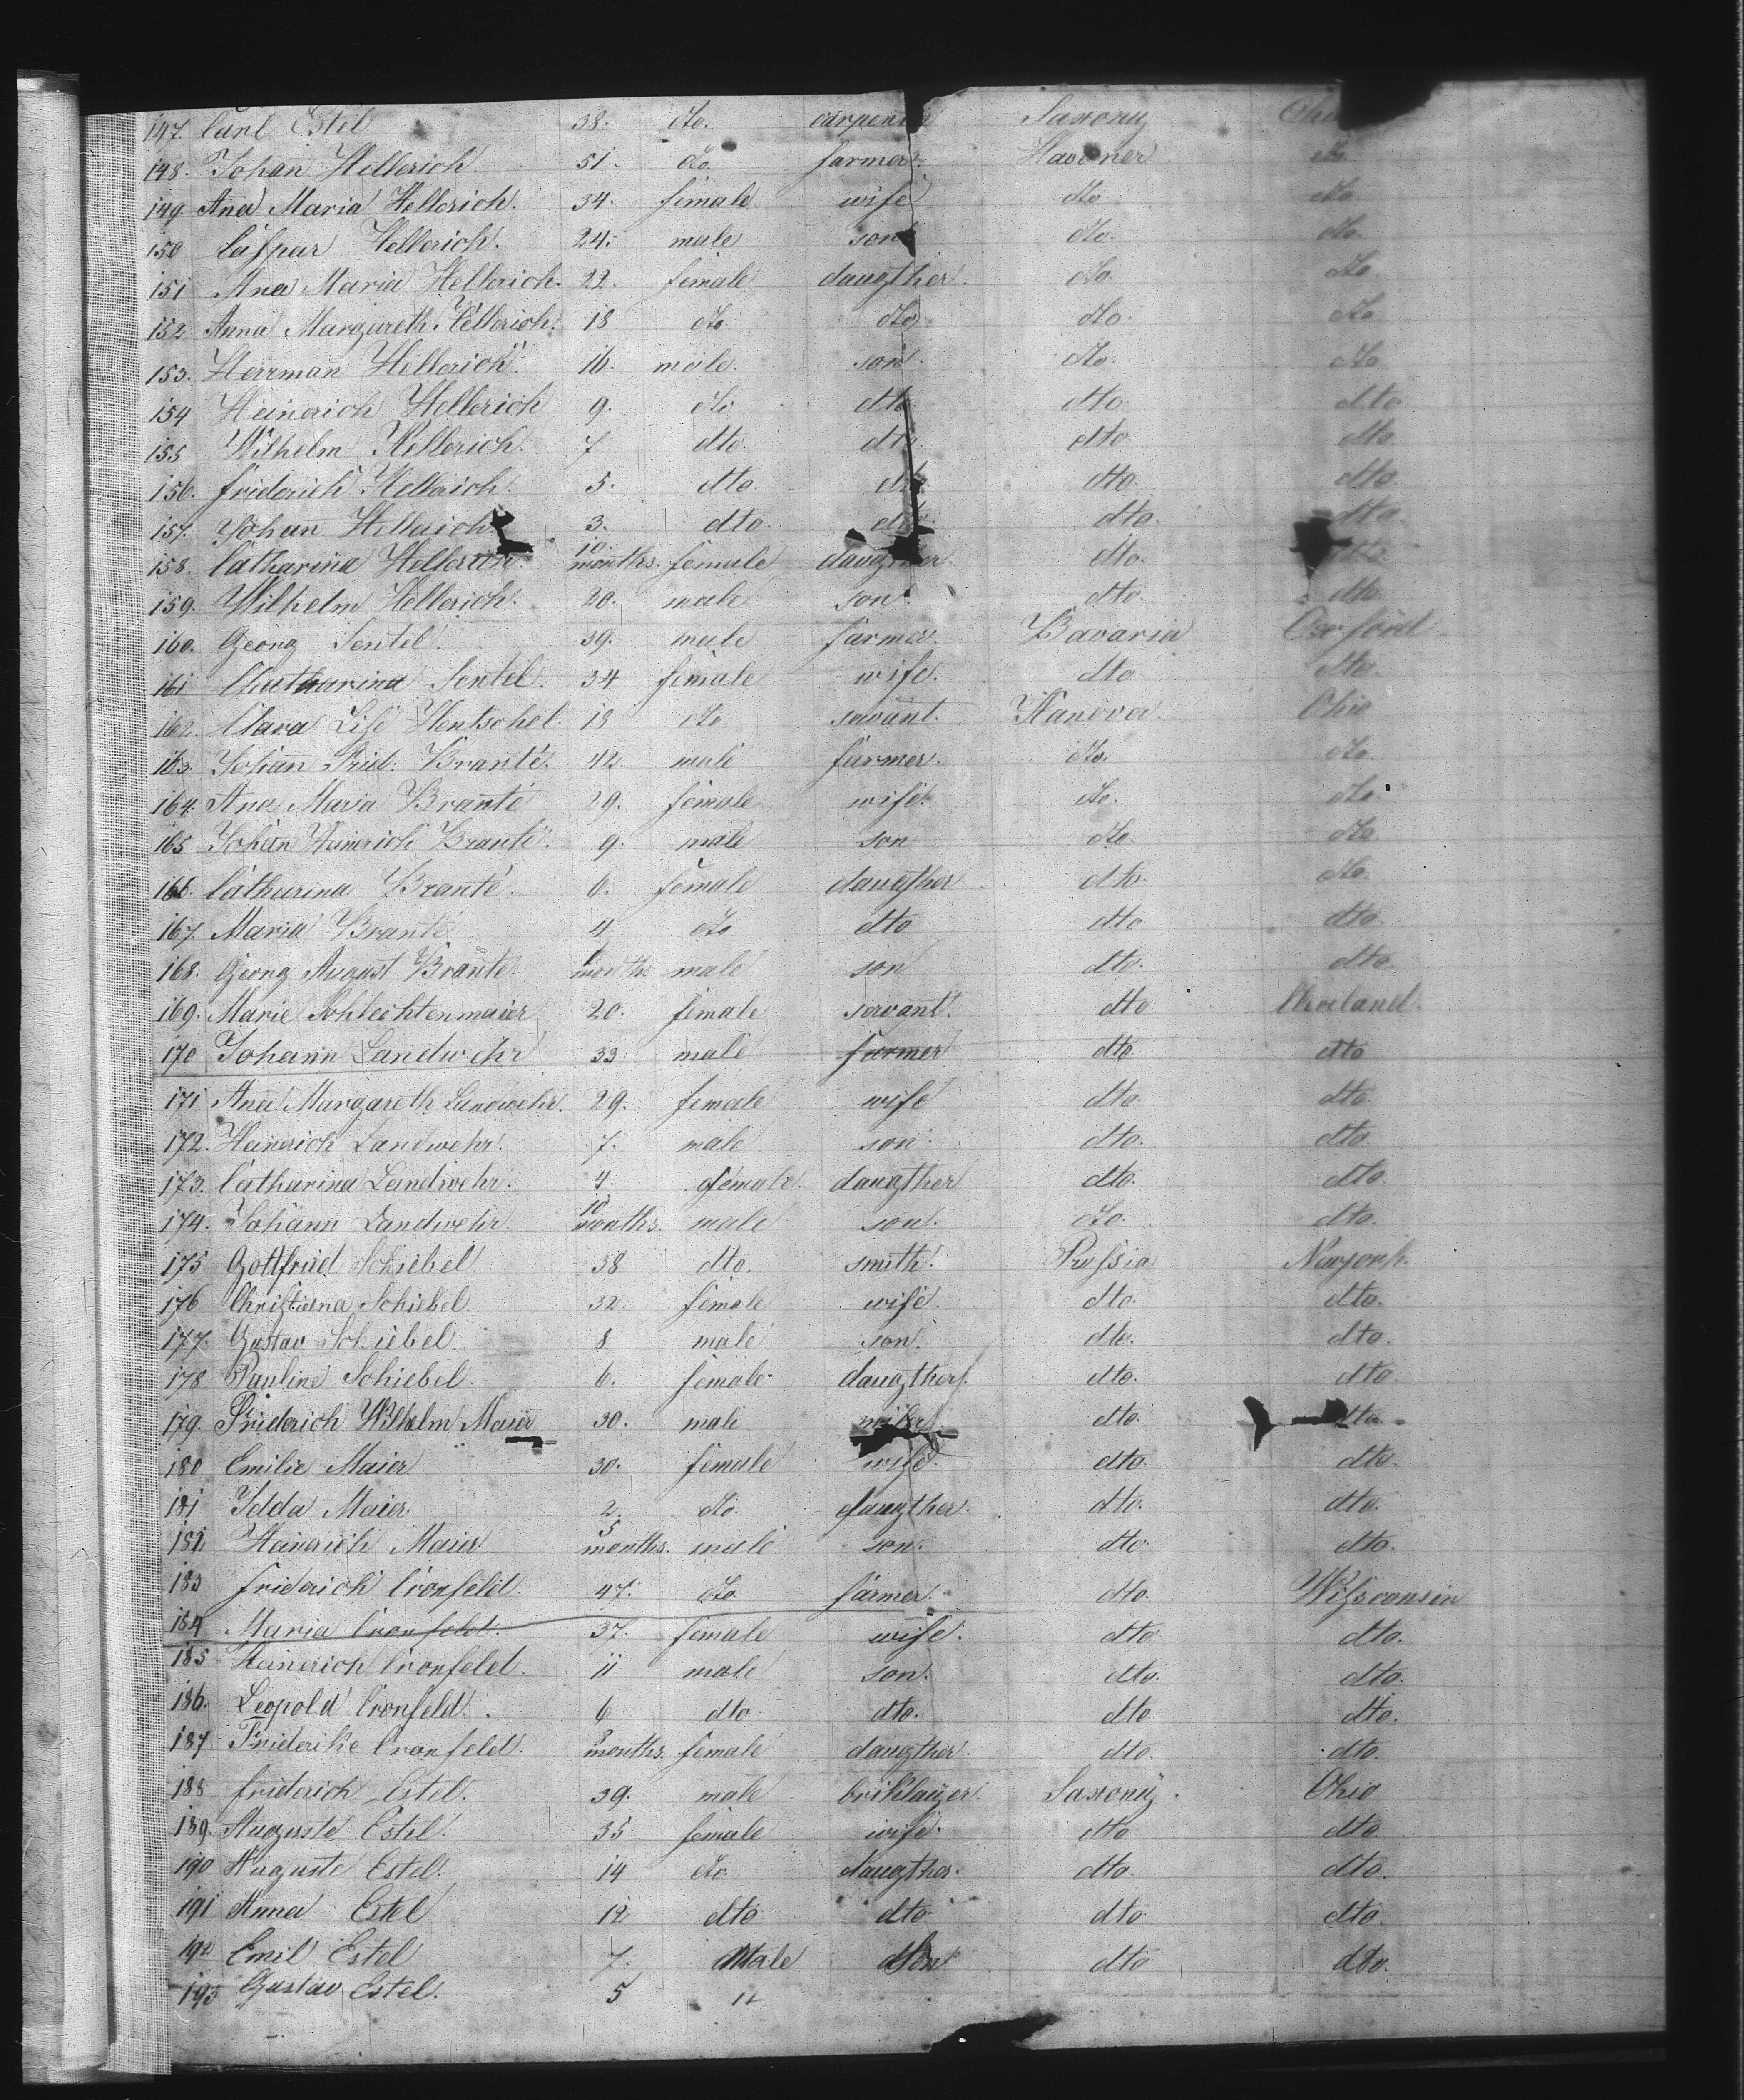 147. Carl Estel 38. dto. carpenter Saxony
148. Johan Hellerich. 51. dto. farmer. Hanover dto.
149. Ana Maria Hellerich. 34. female wife dto. dto.
150 Caspar Hellerich. 24. male son dto. dto.
151 Ana Maria Hellerich. 22. female daugther. dto. dto.
152 Anna Margareth Hellerich. 18 dto. dto. dto. dto.
153. Herrman Hellerich. 16. male. son. dto. dto
154 Heinerich Hellerich 9. dto dto. dto. dto
155 Wilhelm Hellerich. 7 dto. dto. dto. dto
156. friderich Hellerich. 5. dto. dto. dto. dto
157. Johan Hellerich 3. dto. dto. dto. dto.
158. Catharina Hellerich. 10. months. female daugther dto. dto.
159. Wilhelm Hellerich. 20. male son. dto dto
160. Georg Sentel. 39. male farmer. Bavaria
161 Chatharina Sentel. 34 female wife. dto dto.
162. Clara Lise Hentschel. 18 dto servant. Hanover. Ohio
163. Johann Frid. Brante. 42. male farmer. dto. dto
164. Ana Maria Brante 29. female wife. dto. dto.
165 Johan Heinerich Brante. 9. male son dto. dto
166. Catharina Brante. 6. female daugther dto. dto.
167. Maria Brante 4 dto dto dto dto.
168. Georg August Brante. months male son dto. dto.
169. Marie Schlechtenmaier 20. female servant. dto Cleveland.
170 Johann Landwehr 33. male farmer dto. dto
171 Ana Margareth Landwehr. 29. female wife dto. dto.
172. Heinerich Landwehr. 7. male son. dto. dto
173. Catharina Landwehr. 4. female. daugther dto. dto.
174. Johann Landwehr. 10 months. male son. dto. dto.
175 Gottfried Schiebel 38 dto. smith. Prussia Newyork.
176 Christiena Schiebel. 32. female wife. dto. dto.
177. Gustav Schiebel. 8 male son. dto. dto.
178 Pauline Schiebel. 6. female daugther. dto. dto.
179. Friederich Wilhelm Maier 30. male dto. dto.
180 Emilie Maier 30. female wife. dto. dto.
181 Idda Maier. 2. dto. daugther. dto. dto.
182 Heinerich Maier 5 months. male son. dto. dto.
183 friderich Cronfeld. 47. dto farmer. dto. Wissconsin
184 Maria Cronfeld. 37. female wife. dto. dto.
185 Heinerich Cronfeld. 11 male son. dto. dto.
186. Leopold Cronfeld. 6 dto. dto. dto dto.
187 Friederike Cronfeld. months. female daugther. dto. dto.
188 friderich Estel. 39. male briklayer. Saxony. Ohio
189. Auguste Estel. 35 female wife. dto dto.
190 Auguste Estel. 14 dto. daugther. dto. dto.
191 Anna Estel 12 dto dto dto dto.
192 Emil Estel 7. Male Son dto dto.
193 Gustav Estel. 5 "